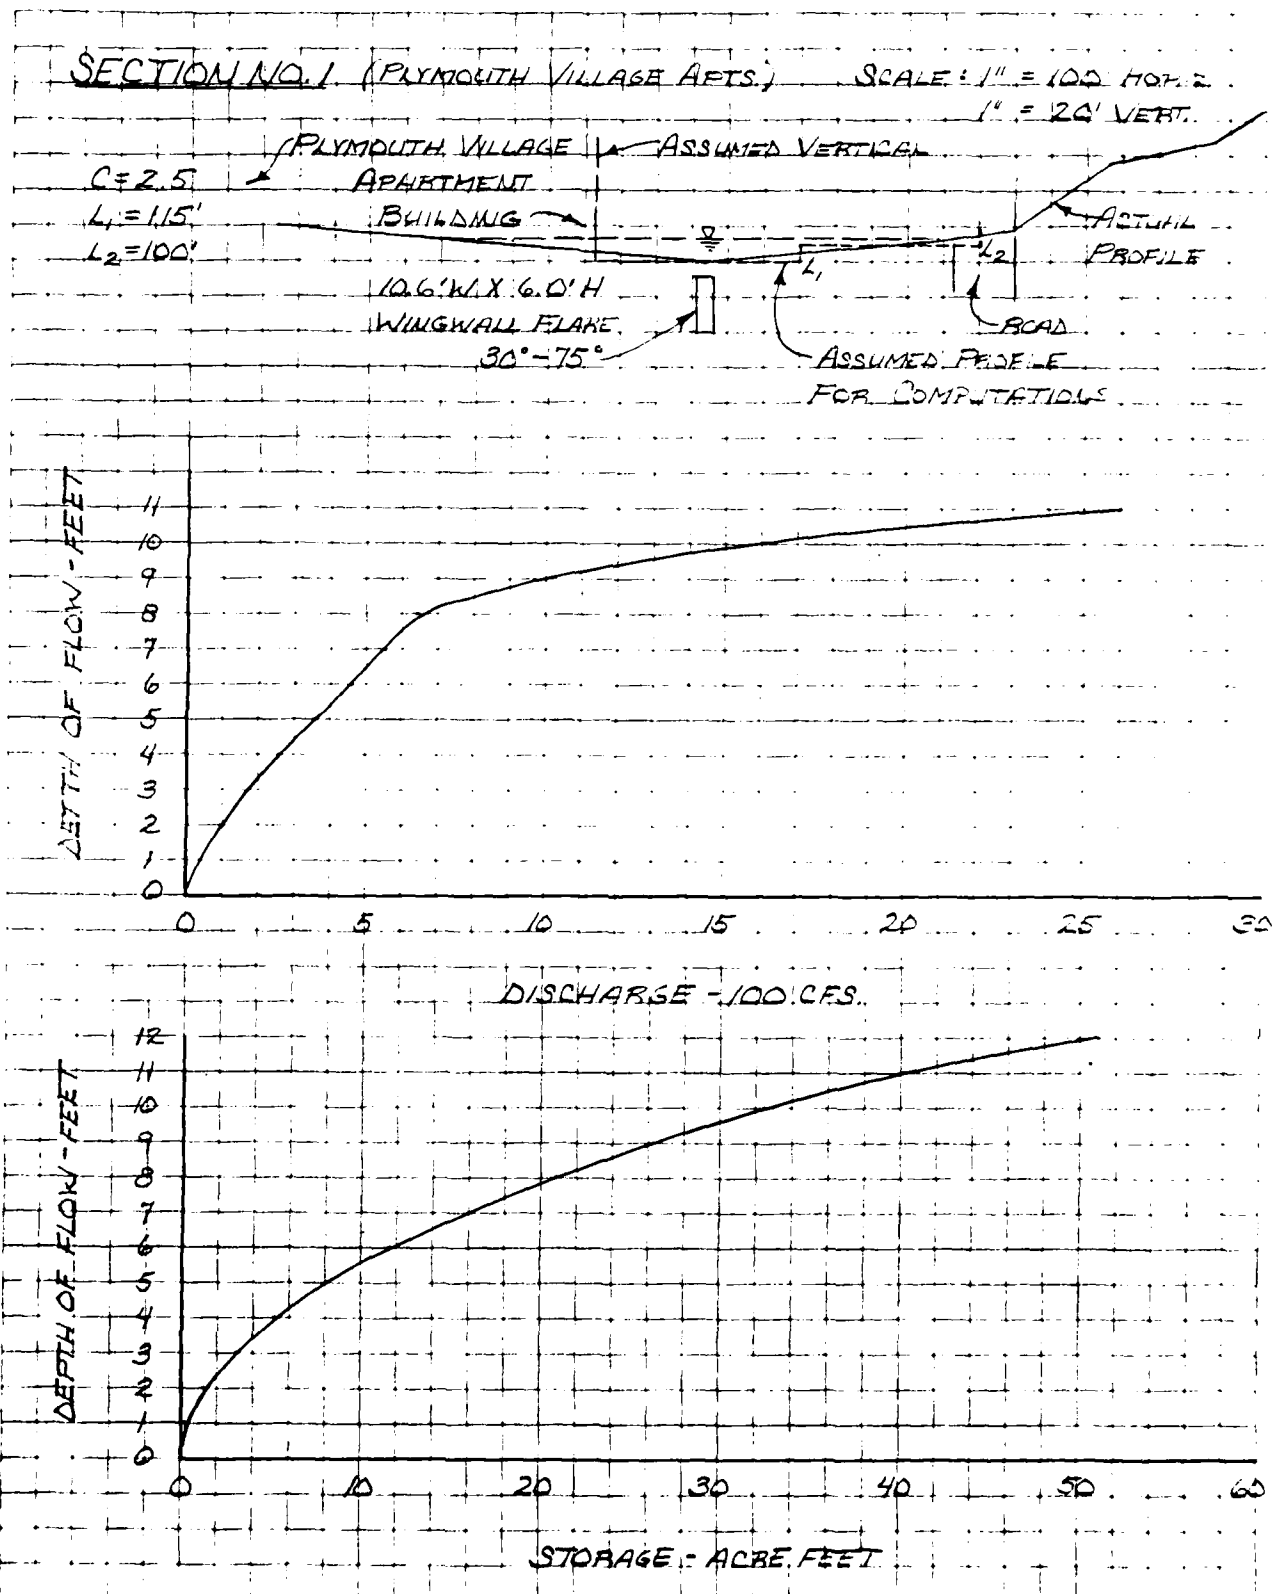 SECTION NO. 1 (PLYMOUTH VILLAGE APTS.) SCALE: 1" = 100 HORZ
1" = 20' VERT.
PLYMOUTH VILLAGE
APARTMENT
BUILDING
ASSUMED VERTICAL
C = 2.5
L1 = 115'
L2 = 100'
ACTUAL
PROFILE
L1
L2
10.6' W. X 6.0' H
WINGWALL FLARE
30° - 75°
ROAD
ASSUMED PROFILE
FOR COMPUTATIONS
DEPTH OF FLOW - FEET
11
10
9
8
7
6
5
4
3
2
1
0
0 5 10 15 20 25 30
DISCHARGE - 100 CFS.
DEPTH OF FLOW - FEET
12
11
10
9
8
7
6
5
4
3
2
1
0
0 10 20 30 40 50 60
STORAGE - ACRE FEET